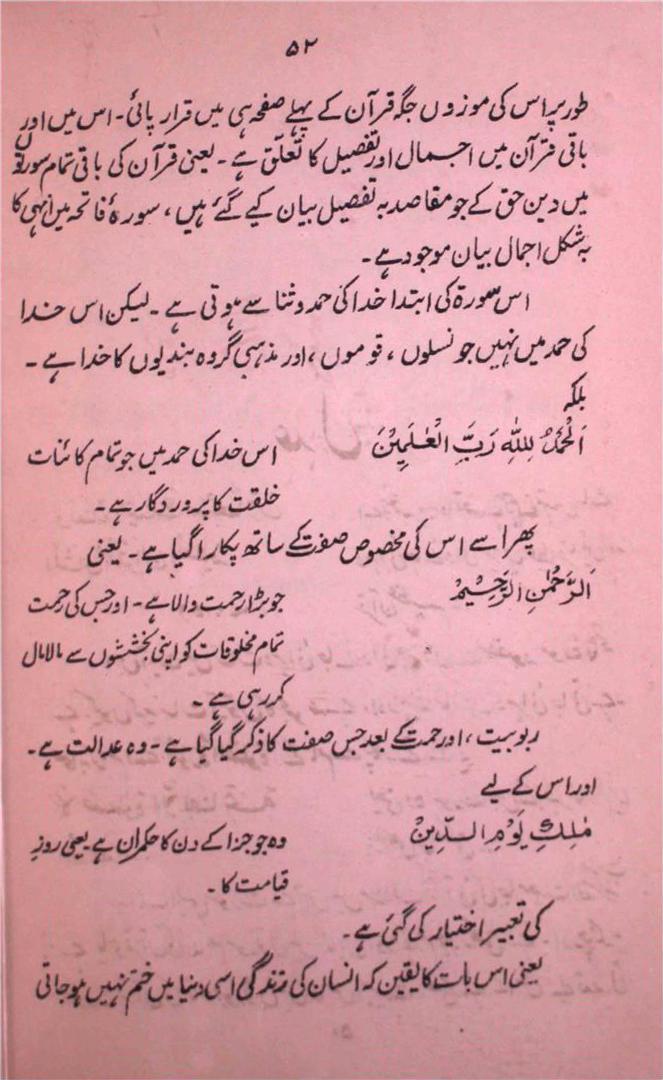 ۵۲
طور پر اس کی موزوں جگہ قرآن کے پہلے صفحہ ہی میں قرار پائی۔ اس میں اور
باقی قرآن میں اجمال اور تفصیل کا تعلق ہے۔ یعنی قرآن کی باقی تمام سورتوں
میں دین حق کے جو مقاصد بہ تفصیل بیان کیے گئے ہیں، سورۂ فاتحہ میں انہی کا
بہ شکل اجمال بیان موجود ہے۔
اس سورۃ کی ابتدا خدا کی حمد و ثنا سے ہوتی ہے۔ لیکن اس خدا
کی حمد میں نہیں جو نسلوں، قوموں، اور مذہبی گروہ بندیوں کا خدا ہے۔
بلکہ
اَلْحَمْدُ لِلّٰهِ رَبِّ الْعٰلَمِيْنَ اس خدا کی حمد میں جو تمام کائنات
خلقت کا پروردگار ہے۔
پھر اسے اس کی مخصوص صفت کے ساتھ پکارا گیا ہے۔ یعنی
اَلرَّحْمٰنِ الرَّحِيْمِ جو بڑا رحمت والا ہے۔ اور جس کی رحمت
تمام مخلوقات کو اپنی بخششوں سے مالامال
کر رہی ہے۔
ربوبیت، اور رحمت کے بعد جس صفت کا ذکر گیا گیا ہے۔ وہ عدالت ہے۔
اور اس کے لیے
مٰلِكِ يَوْمِ الدِّيْنِ وہ جو جزا کے دن کا حکمران ہے یعنی روزِ
قیامت کا۔
کی تعبیر اختیار کی گئی ہے۔
یعنی اس بات کا یقین کہ انسان کی زندگی اسی دنیا میں ختم نہیں ہو جاتی